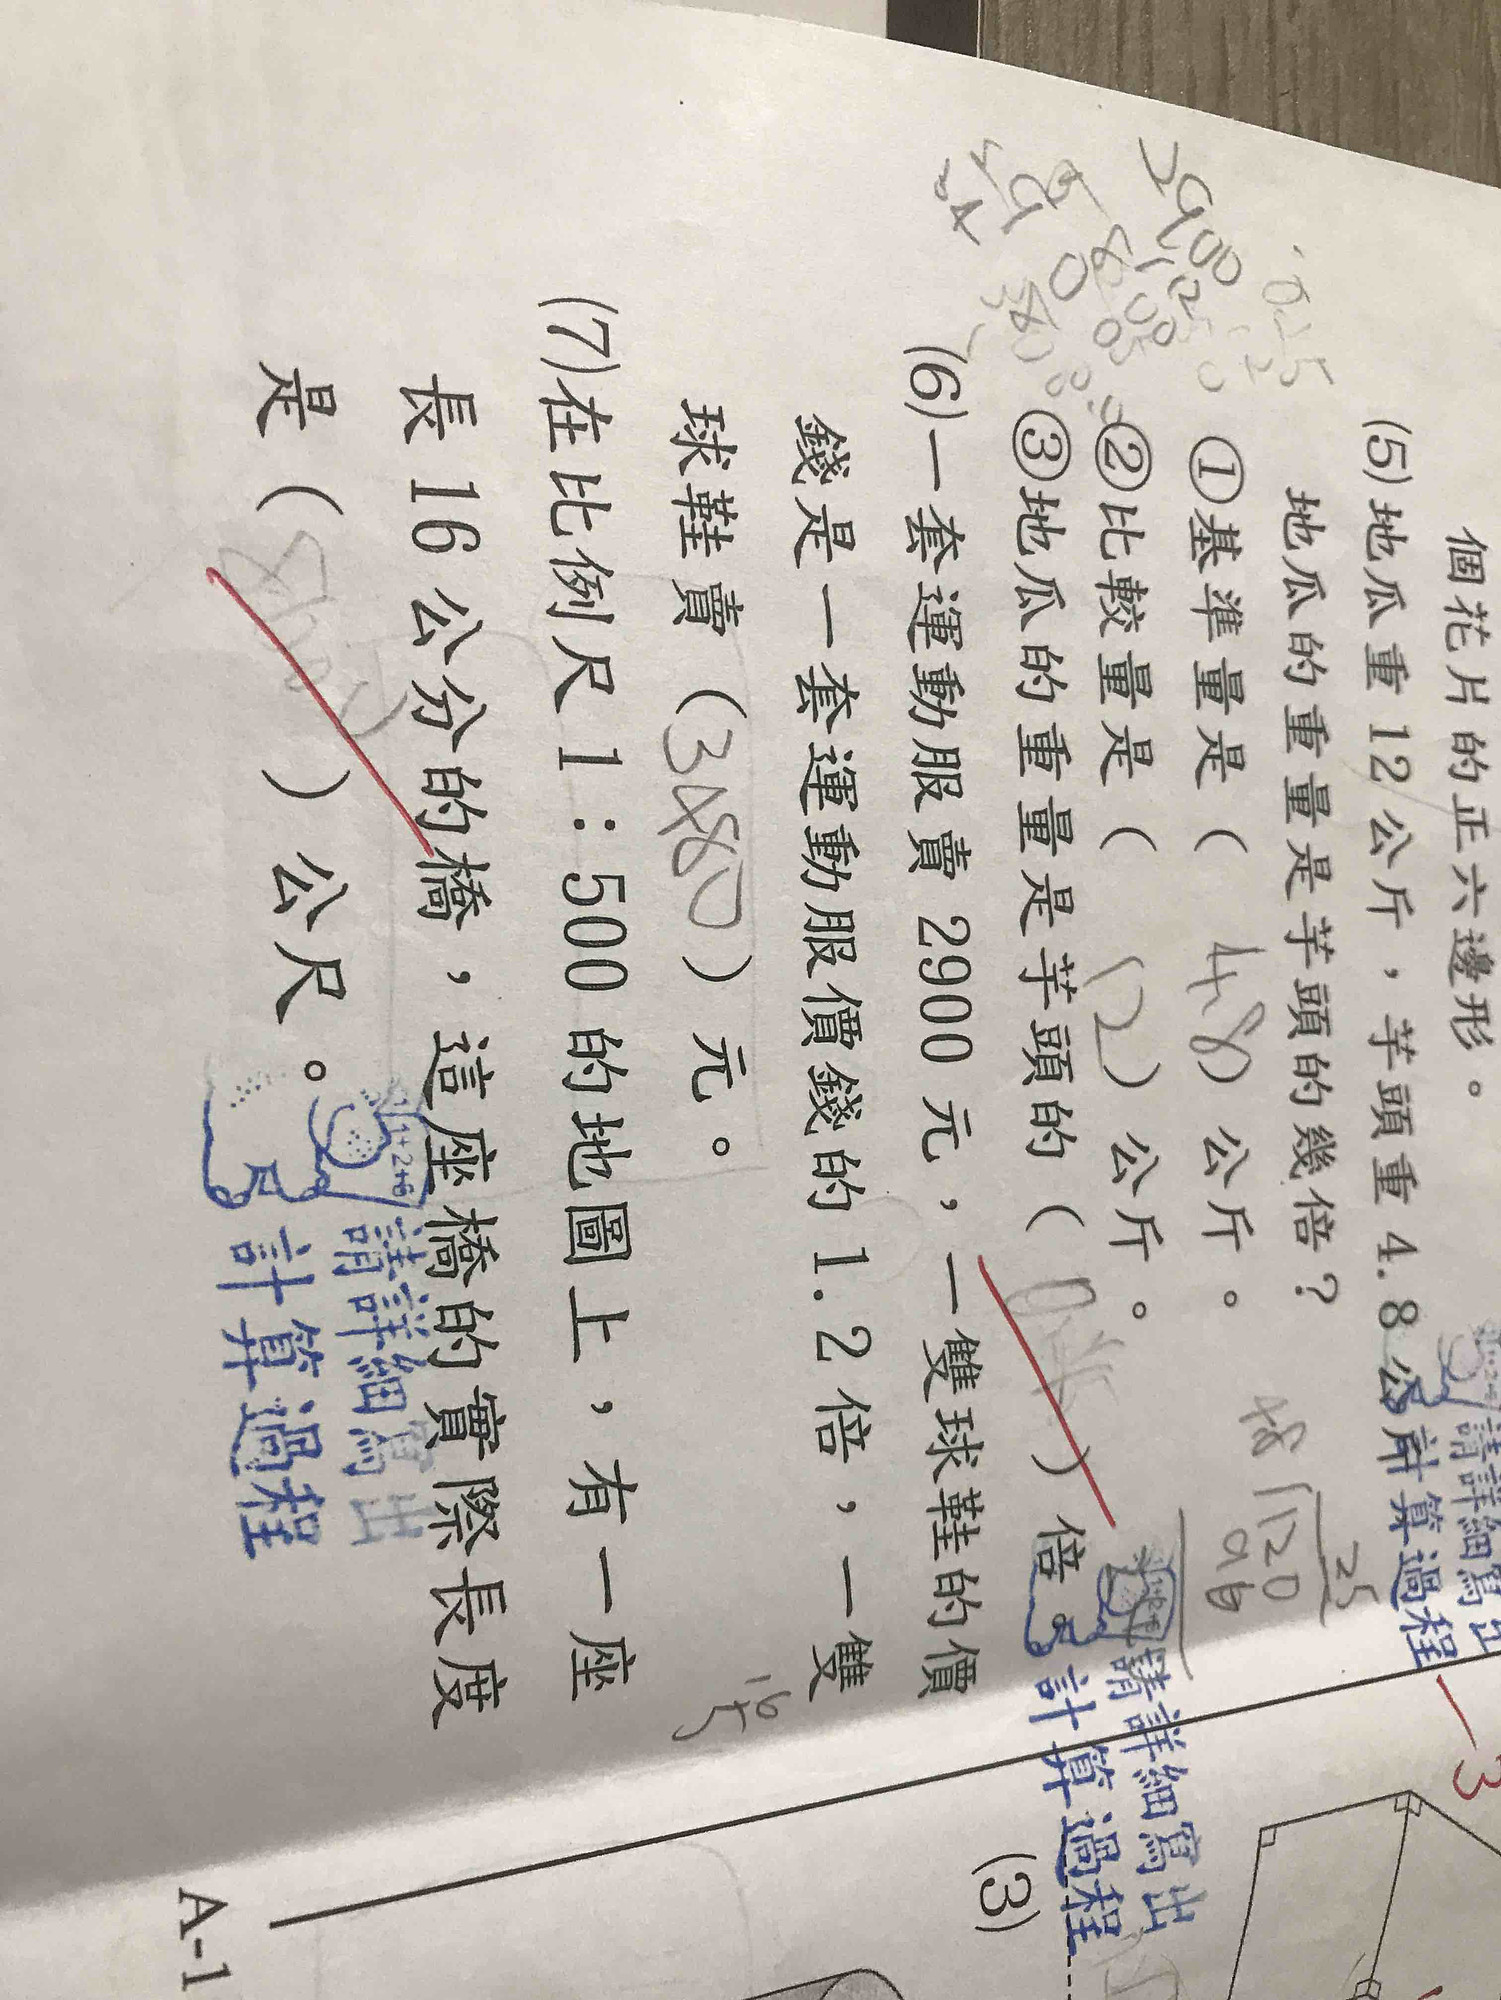 個花片的正六邊形。
(5)地瓜重12公斤，芋頭重4.8公斤，
地瓜的重量是芋頭的幾倍？
①基準量是( 4.8 )公斤。
②比較量是( 12 )公斤。
③地瓜的重量是芋頭的( )倍。
(6)一套運動服賣2900元，一雙球鞋的價
錢是一套運動服價錢的1.2倍，一雙
球鞋賣(3480)元。
(7)在比例尺1：500的地圖上，有一座
長16公分的橋，這座橋的實際長度
是( )公尺。
請詳細寫出
計算過程
請詳細寫出
計算過程
請詳細寫出
計算過程
25
48 120
96
2900
-3
(3)
A-1